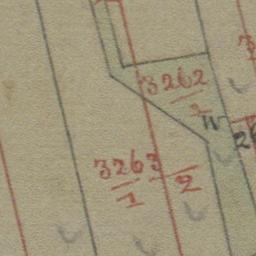 3262
2
3263
1
2